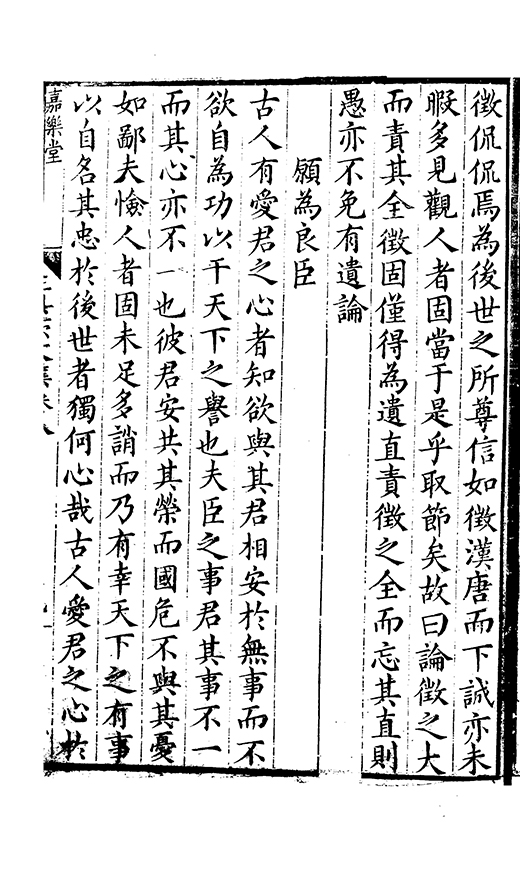 徵侃侃焉為後世之所尊信如徵漢唐而下誠亦未
暇多見觀人者固當于是乎取節矣故曰論徵之大
而責其全徵固僅得為遺直責徵之全而忘其直則
愚亦不免有遺論
願為良臣
古人有愛君之心者知欲與其君相安於無事而不
欲自為功以干天下之譽也夫臣之事君其事不一
而其心亦不一也彼君安共其榮而國危不與其憂
如鄙夫憸人者固未足多誚而乃有幸天下之有事
以自名其忠於後世者獨何心哉古人愛君之心於
嘉樂堂